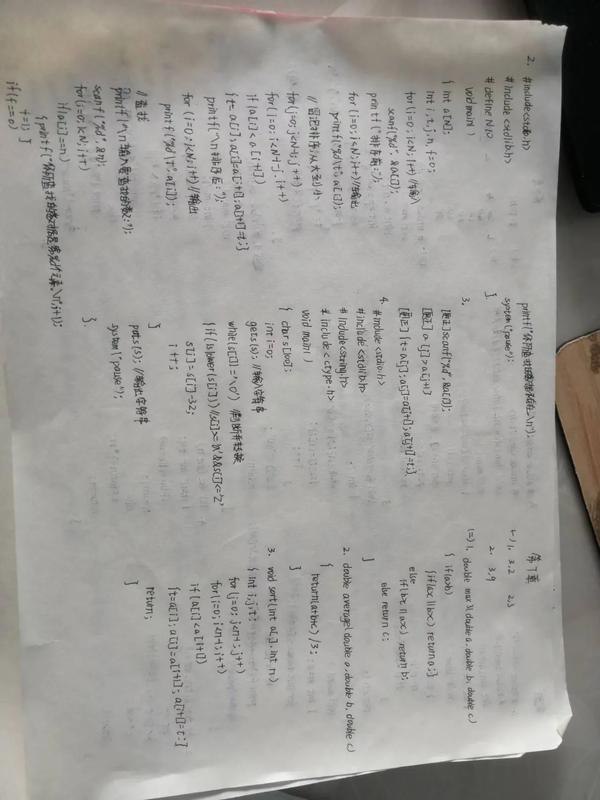 2. #include<stdio.h>
#include<stdlib.h>
#define N 10
void main()
{ int a[N];
int i,t,j,n,f=0;
for(i=0;i<N;i++) //输入
scanf("%d",&a[i]);
printf("排序前:");
for(i=0;i<N;i++) //输出
printf("%d\t",a[i]);
//冒泡排序从大到小
for(j=0;j<N-1;j++)
for(i=0;i<N-1-j;i++)
if(a[i]<a[i+1])
{t=a[i];a[i]=a[i+1];a[i+1]=t;}
printf("\n排序后:");
for(i=0;i<N;i++) //输出
printf("%d\t",a[i]);
//查找
printf("\n输入要查找的数:");
scanf("%d",&n);
for(i=0;i<N;i++)
if(a[i]==n)
{printf("你所查找的数据是第%d个元素\n",i+1);
f=1;}
if(f==0)
printf("你所查找的数不存在\n");
system("pause");
}
3.
[更正]scanf("%d",&a[i]);
[更正]a[i]>a[i+1]
[更正]{t=a[i];a[i]=a[i+1];a[i+1]=t;}
4. #include<stdio.h>
#include<stdlib.h>
#include<string.h>
#include<ctype.h>
void main()
{ char s[100];
int i=0;
gets(s); //输入字符串
while(s[i]!='\0') //判断并转换
{if(islower(s[i])) //s[i]>='a'&&s[i]<='z'
s[i]=s[i]-32;
i++;
}
puts(s); //输出字符串
system("pause");
}
第7章
(一)1. 3,2 2,3
2. 3,9
(二)1. double max3(double a,double b,double c)
{ if(a>b)
{if(a>c||b>c) return a;}
else
if(b>c||a>c) return b;
else return c;
}
2. double average(double a,double b,double c)
{
return(a+b+c)/3;
}
3. void sort(int a[],int n)
{ int i,j,t;
for(j=0;j<n-1;j++)
for(i=0;i<n-1;i++)
if(a[i]<a[i+1])
{t=a[i];a[i]=a[i+1];a[i+1]=t;}
return;
}